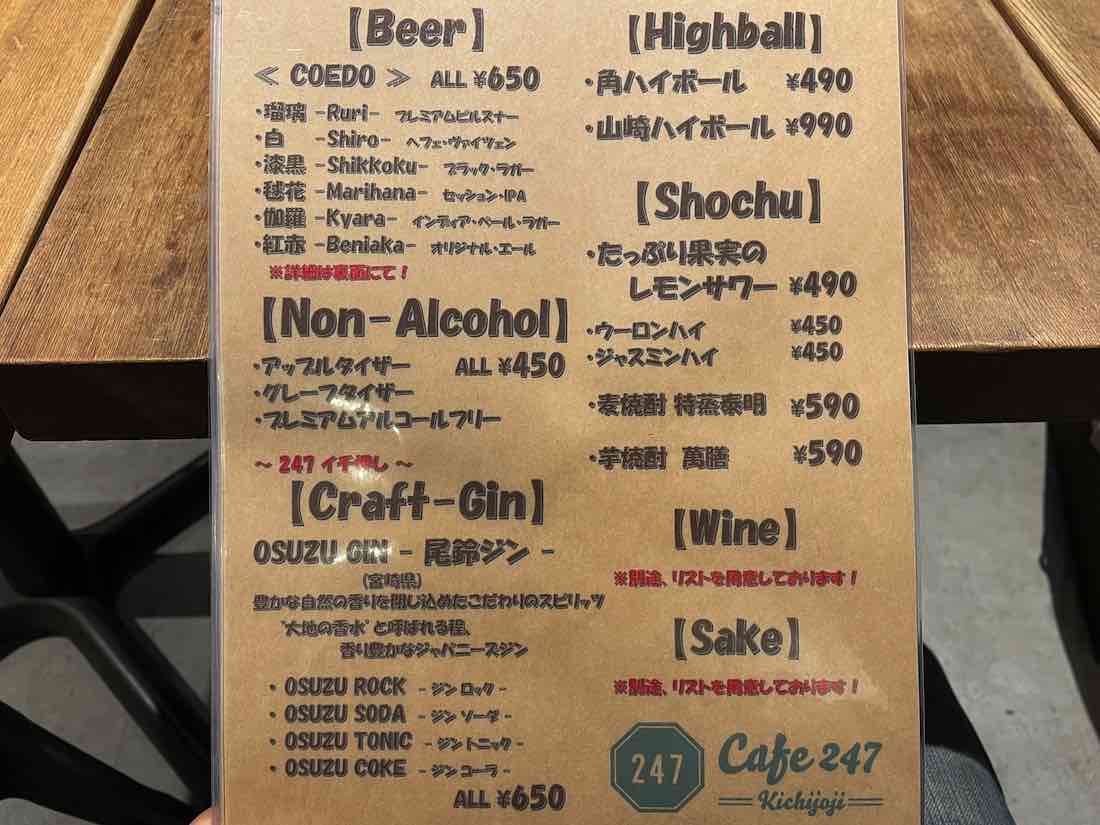 【Beer】
≪ COEDO ≫ ALL ¥650
・瑠璃 -Ruri- プレミアムピルスナー
・白 -Shiro- ヘフェ・ヴァイツェン
・漆黒 -Shikkoku- ブラック・ラガー
・毬花 -Marihana- セッション・IPA
・伽羅 -Kyara- インディア・ペール・ラガー
・紅赤 -Beniaka- オリジナル・エール
※詳細は裏面にて!
【Non-Alcohol】
・アップルタイザー ALL ¥450
・グレープタイザー
・プレミアムアルコールフリー
～ 247 イチ押し ～
【Craft-Gin】
OSUZU GIN - 尾鈴ジン -
(宮崎県)
豊かな自然の香りを閉じ込めたこだわりのスピリッツ
"大地の香水"と呼ばれる程、
香り豊かなジャパニーズジン
・ OSUZU ROCK - ジン ロック -
・ OSUZU SODA - ジン ソーダ -
・ OSUZU TONIC - ジン トニック -
・ OSUZU COKE - ジン コーラ -
ALL ¥650
【Highball】
・角ハイボール ¥490
・山崎ハイボール ¥990
【Shochu】
・たっぷり果実の
レモンサワー ¥490
・ウーロンハイ ¥450
・ジャスミンハイ ¥450
・麦焼酎 特蒸泰明 ¥590
・芋焼酎 萬膳 ¥590
【Wine】
※別途、リストを用意しております!
【Sake】
※別途、リストを用意しております!
247
Cafe 247
Kichijoji